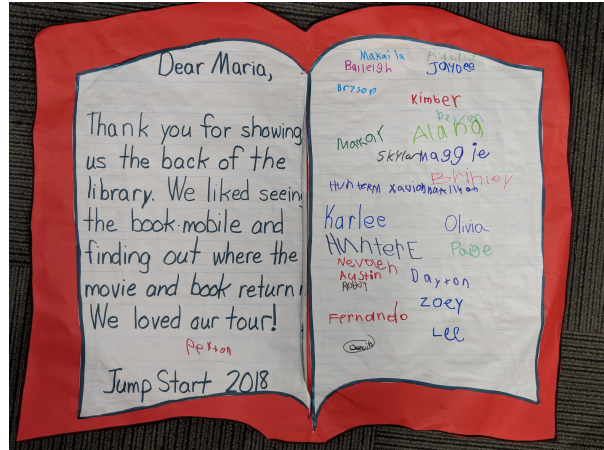 Dear Maria,
Thank you for showing
us the back of the
library. We liked seeing
the book mobile and
finding out where the
movie and book return
We loved our tour!
Peyton
Jump Start 2018
Makaila
Baileigh Jaydee
Brysop
Kimber
Makar Alana
Skylar Maggie
HunterM Xavior Brinley
Karlee Olivia
HunterE Paige
Nevaeh
Austin Dayton
Zoey
Fernando
Lee